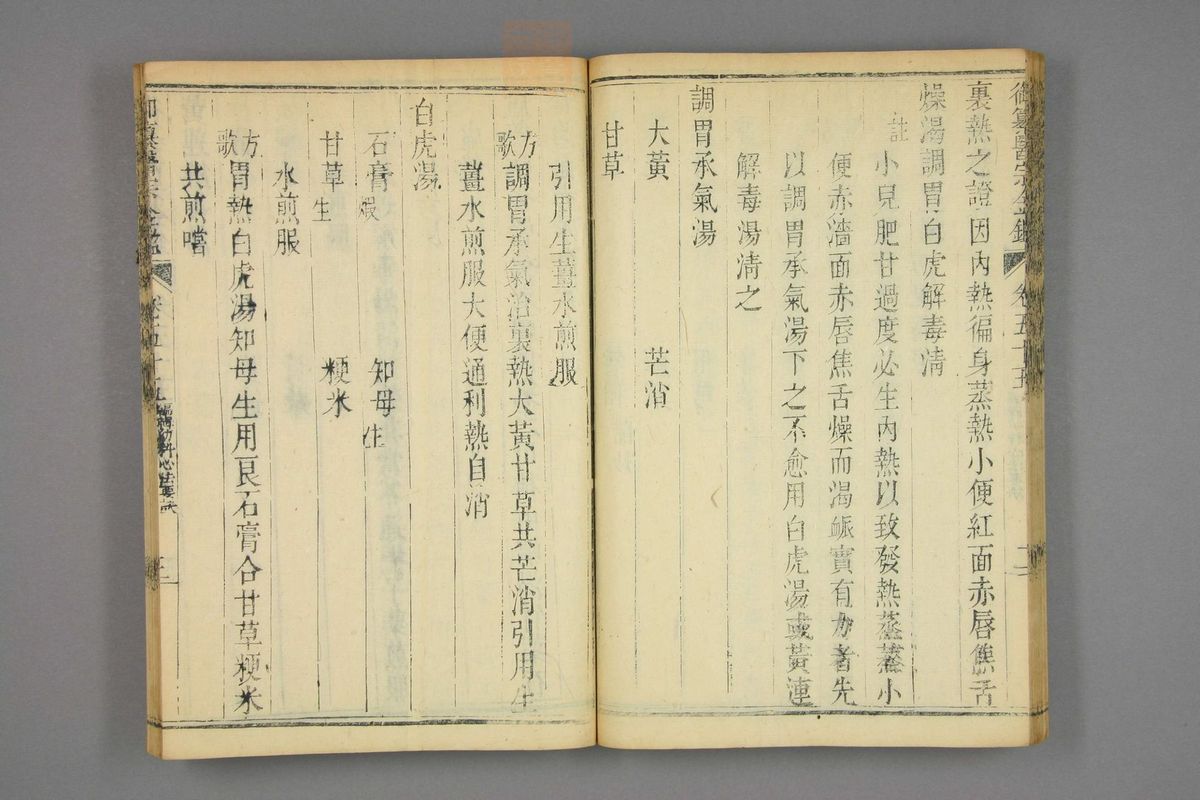 御纂醫宗金鑑 卷五十五
裏熱之證因內熱徧身蒸熱小便紅面赤唇焦舌
燥渴調胃白虎解毒淸
註 小兒肥甘過度必生內熱以致發熱蒸蒸小
便赤濇面赤唇焦舌燥而渴脈實有力者先
以調胃承氣湯下之不愈用白虎湯或黃連
解毒湯淸之
調胃承氣湯
大黃 芒消
甘草
引用生薑水煎服
方歌 調胃承氣治裏熱大黃甘草共芒消引用生
薑水煎服大便通利熱自消
白虎湯
石膏煆 知母生
甘草生 粳米
水煎服
方歌 胃熱白虎湯知母生用良石膏合甘草粳米
共煎嘗
御纂醫宗金鑑 卷五十五 編輯幼科心法要訣